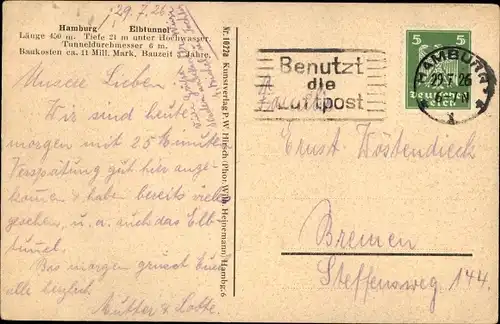 29.7.26
Hamburg Elbtunnel
Länge 450 m. Tiefe 21 m unter Hochwasser.
Tunneldurchmesser 6 m.
Baukosten ca. 11 Mill. Mark, Bauzeit Jahre.
Unsere Lieben.
Wir sind heute
morgen mit 25 Minuten
Verspätung gut hier ange-
kommen & haben bereits viel
gesehen, u. a. auch das Elb-
tunnel.
Bis morgen grüsst Euch
alle herzlich
Mutter & Lotte.
Nr. 1077a Kunstverlag P. W. Hirsch/Phot. Wilh. Heinemann, Hambg. 6
Benutzt
die
Luftpost
HAMBURG
29.7.26
5 5
Deutsches
Reich
Familie
Ernst Wöstendieck
Bremen
Steffensweg 144.